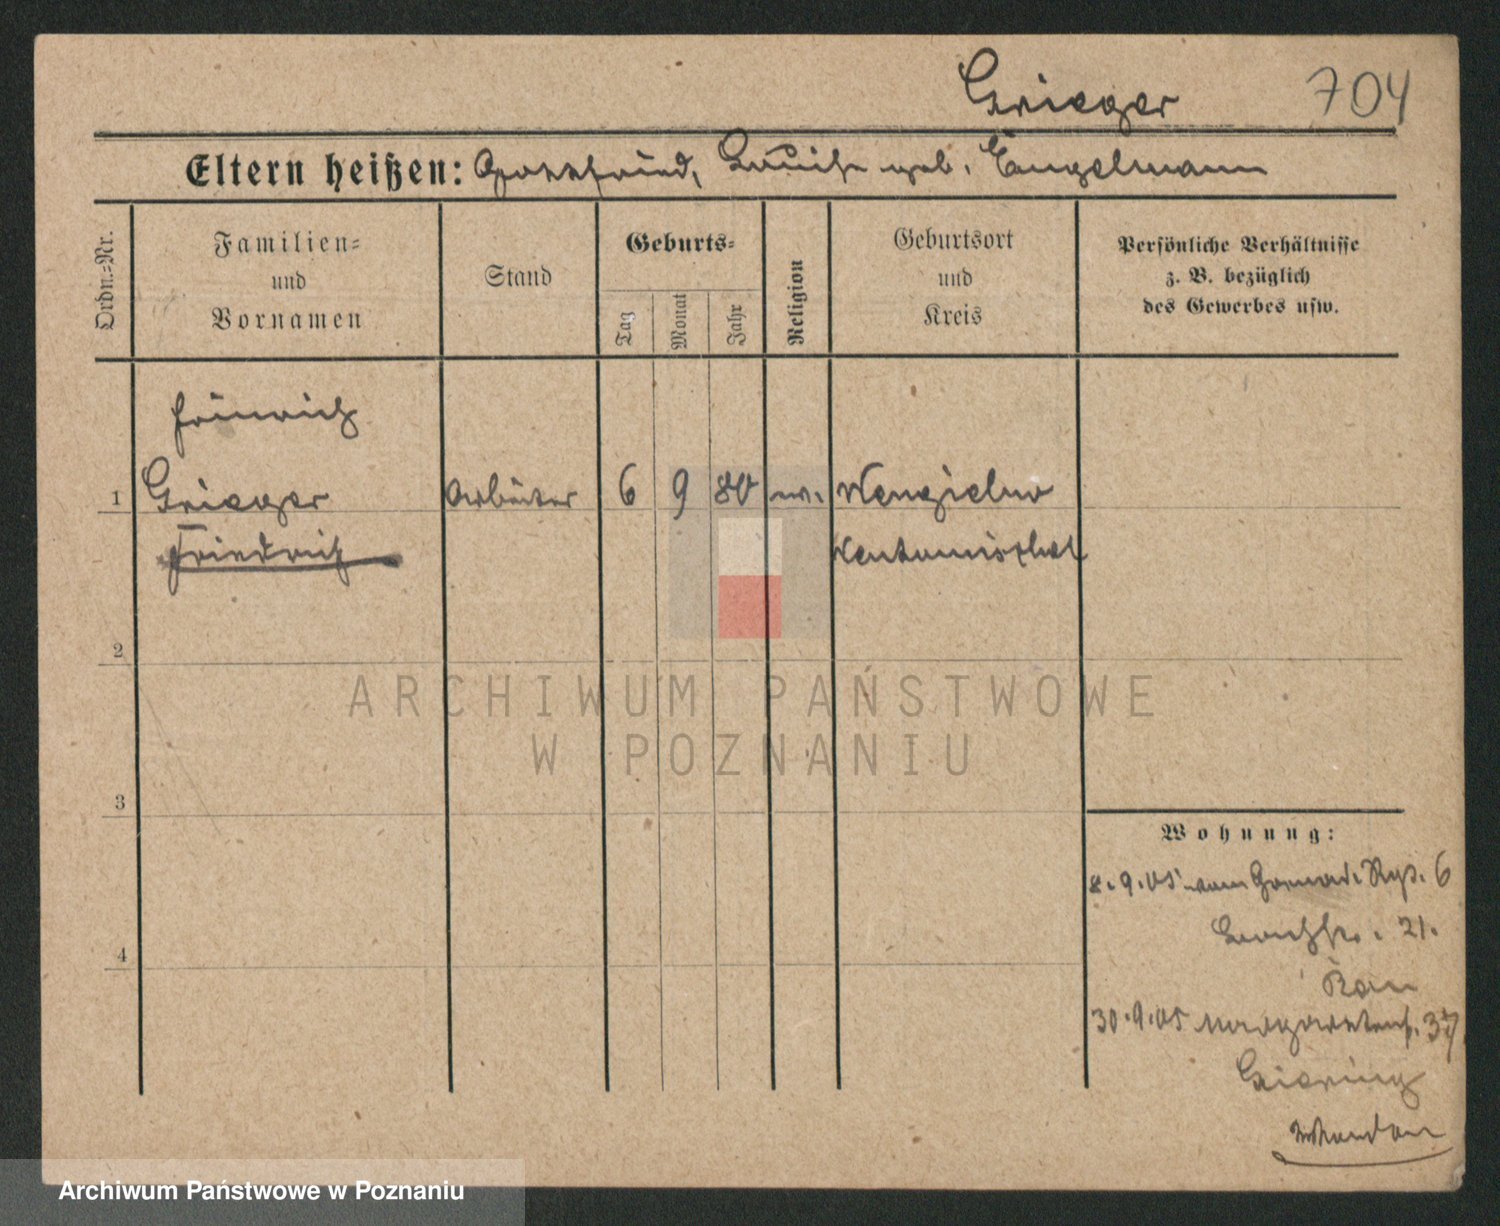 Grieger 704
Eltern heißen: Gottfried, Luise geb. Engelmann
Ordn.=Nr.
Familien=
und
Vornamen
Stand
Geburts=
Tag
Monat
Jahr
Religion
Geburtsort
und
Kreis
Persönliche Verhältnisse
z. B. bezüglich
des Gewerbes usw.
Heinrich
1 Grieger Arbeiter 6 9 80 ev.
Friedrich
2
3
4
ARCHIWUM PAŃSTWOWE
W POZNANIU
Wohnung:
8.9.05 vom Grenad. Rgt. 6
21.
30.9.05 Margaretenstr. 37
Archiwum Państwowe w Poznaniu